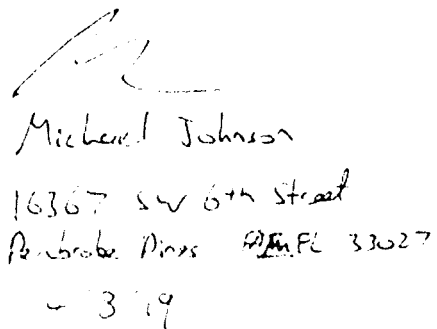 Michael Johnson
16367 SW 6th Street
Pembroke Pines FL 33027
3 19